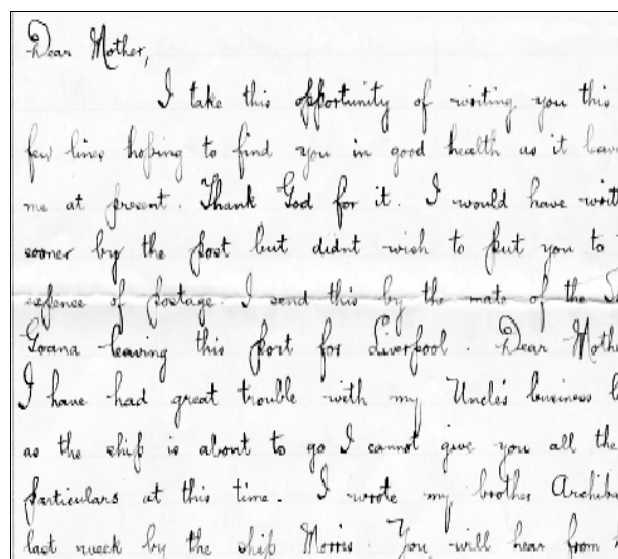 Dear Mother,
I take this opportunity of writing you this
few lines hoping to find you in good health as it leav
me at present. Thank God for it. I would have writt
sooner by the post but didnt wish to put you to
expence of postage. I send this by the mate of the S
Goana leaving this port for Liverpool. Dear Mothe
I have had great trouble with my Uncle's business b
as the ship is about to go I cannot give you all the
particulars at this time. I wrote my brother Archiba
last week by the ship Morris. You will hear from